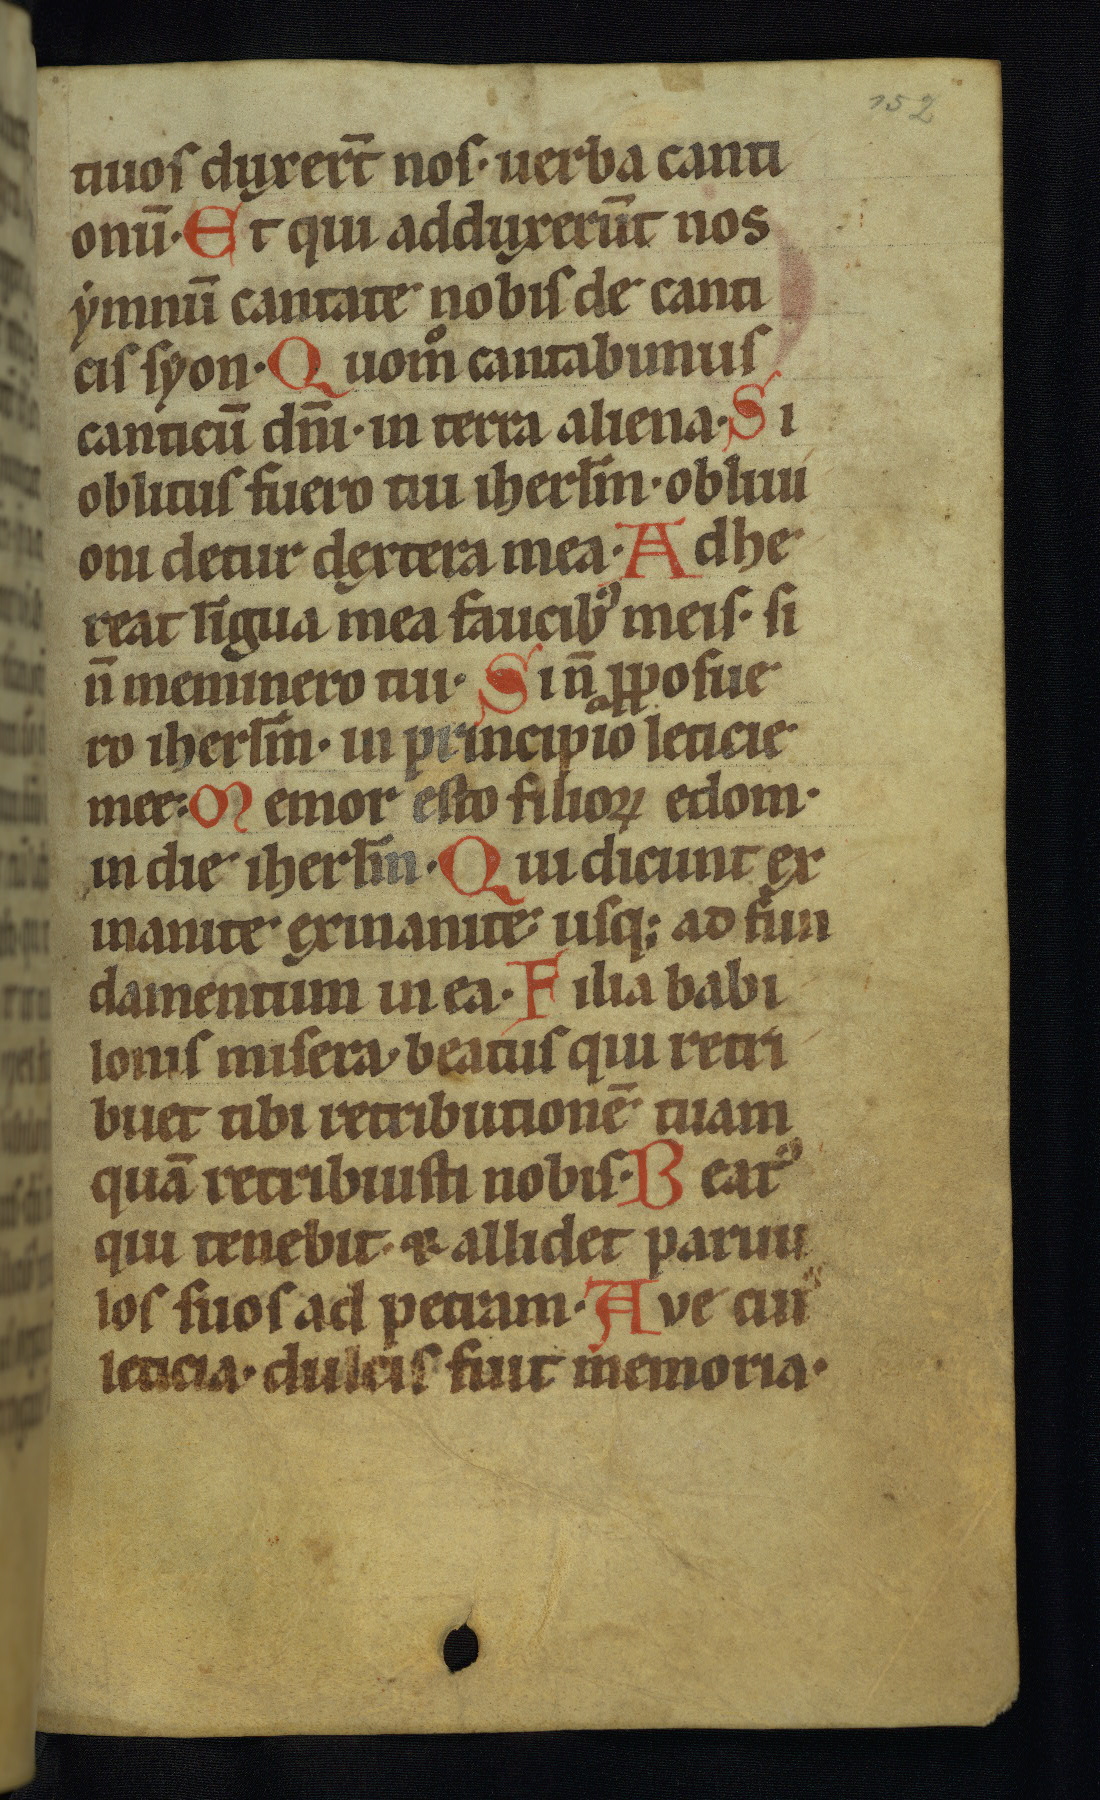 152
tiuos duxert̄ nos· uerba canti
onū· Et qui adduxerūt nos
ẏmnū cantate nobis de canti
cis syon· Quomͦ cantabimus
canticū dn̄i· in terra aliena· Si
oblitus fuero tui iherl̄m· obliui
oni detur dextera mea· Adhe
reat līgua mea faucibꝰ meis· si
n̄ meminero tui· Si n̄ ꝓposue
ro iherl̄m· in principio leticie
mee· Memor esto filioꝝ edom·
in die iherl̄m· Qui dicunt ex
inanite exinanite usq; ad fun
damentum in ea· Filia babi
lonis misera· beatus qui retri
buet tibi retributionē tuam
quā retribuisti nobis· Beatꝰ
qui tenebit· ⁊ allidet paruu
los suos ad petram· Aue cui'
leticia· dulcis fuit memoria·